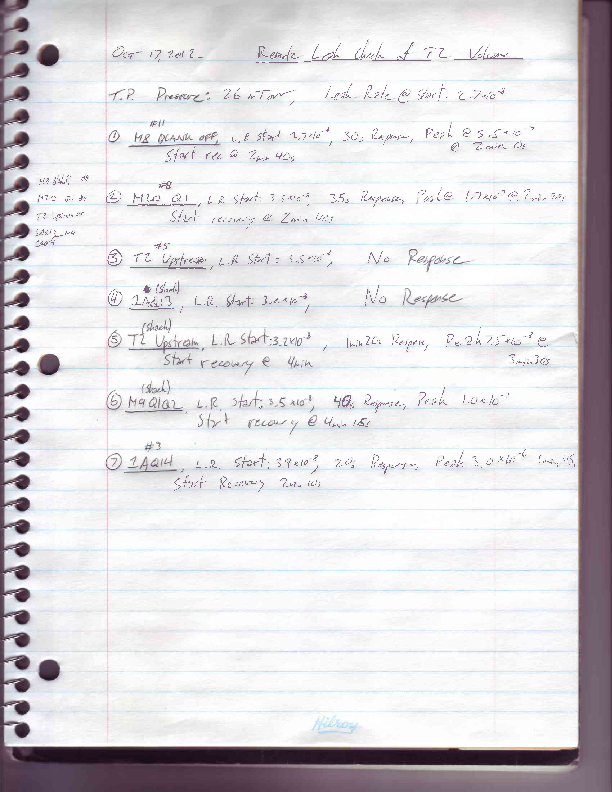 Oct 17, 2012 - Remote Leak Check of T2 Volume
T.P. Pressure: 26 mTorr, Leak Rate @ start: 2.7x10⁻⁸
#11
① M8 BLANK OFF, L.R start 2.7x10⁻⁸, 30s Response, Peak @ 5.5x10⁻⁷
@ 2min 0s
Start rec @ 2min 40s
#8
② Q1, L.R start 3.5x10⁻⁸, 35s Response, Peak @ 1.7x10⁻⁷ @ 2min 30s
Start recovery @ 2min
#5
③ T2 Upstream, L.R Start = 3.5x10⁻⁸, No Response
④ 1AQ13, L.R. Start: No Response
⑤ T2 Upstream, L.R Start: 3.2x10⁻⁸, 1min 26s Response, Peak 7.5x10⁻⁸ @
3min 30s
Start recovery @ 4min
⑥ M9 Q1Q2, L.R. Start: 3.5x10⁻⁸, 40s Response, Peak 1.0x10⁻⁷
Start recovery @ 4min 15s
#3
⑦ 1AQ14, L.R. Start: 3.9x10⁻⁸, 20s Response, Peak 3.0x10⁻⁶
Start Recovery 2min 10s
T2 Upstream
Hilroy